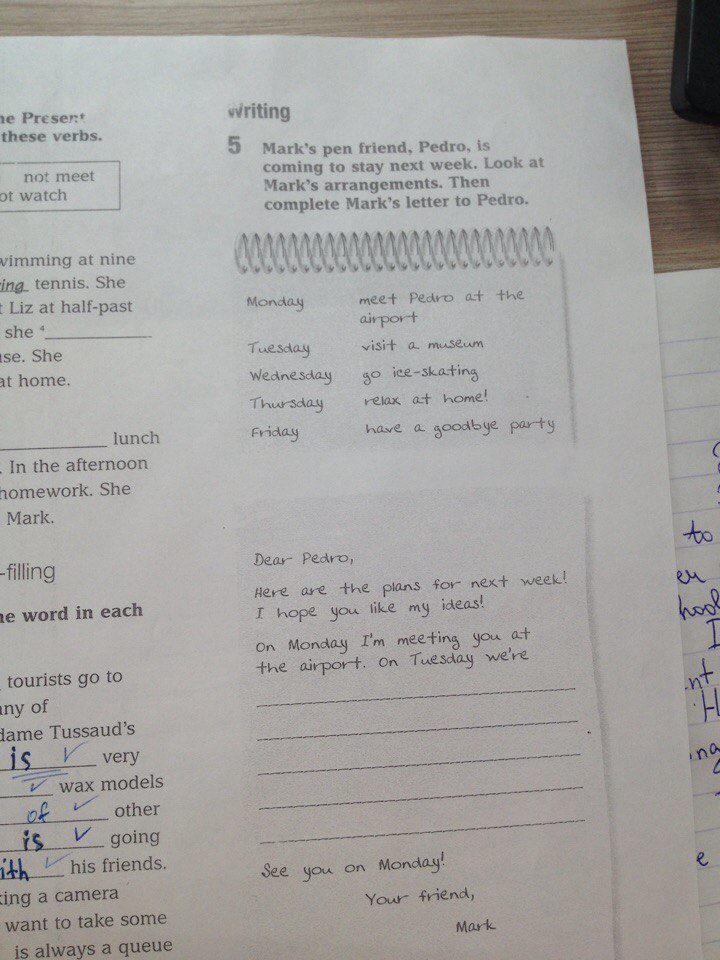 he Present
these verbs.
not meet
ot watch
wimming at nine
ing tennis. She
t Liz at half-past
she 4
use. She
at home.
lunch
. In the afternoon
homework. She
Mark.
-filling
ne word in each
tourists go to
any of
dame Tussaud's
is very
wax models
of other
is going
ith his friends.
king a camera
want to take some
is always a queue
Writing
5 Mark's pen friend, Pedro, is
coming to stay next week. Look at
Mark's arrangements. Then
complete Mark's letter to Pedro.
Monday meet Pedro at the
airport
Tuesday visit a museum
Wednesday go ice-skating
Thursday relax at home!
Friday have a goodbye party
Dear Pedro,
Here are the plans for next week!
I hope you like my ideas!
On Monday I'm meeting you at
the airport. On Tuesday we're
See you on Monday!
Your friend,
Mark
to